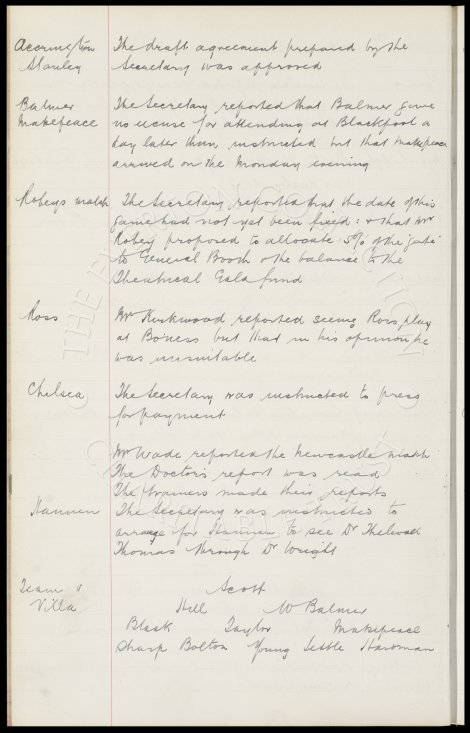 Accrington The draft agreement prepared by the
Stanley Secretary was approved
Balmer The Secretary reported that Balmer gave
Makepeace no excuse for attending at Blackpool a
day later than instructed but that Makepeace
arrived on the Monday evening
Robeys match The Secretary reported that the date of this
game had not yet been fixed: & that Mr
Robey proposed to allocate 5% of the gate
to General Booth & the balance to the
Theatrical Gala fund
Ross Mr Kirkwood reported seeing Ross play
at Boness but that in his opinion he
was unsuitable
Chelsea The Secretary was instructed to press
for payment
Mr Wade reported the Newcastle match
The Doctors report was read
The trainers made their reports
Hannen The Secretary was instructed to
arrange for Hannen to see Dr Thelwall
Thomas through Dr Wright
Team v Scott
Villa Hill W Balmer
Black Taylor Makepeace
Sharp Bolton Young Settle Hardman
THE EVERTON COLLECTION